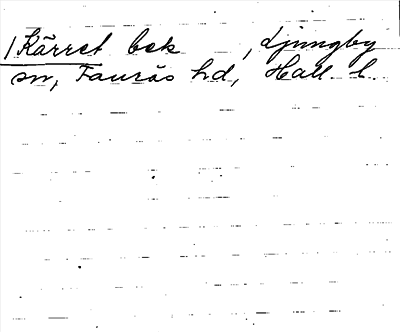 Kärret bek , Ljungby
sn, Faurås hd, Hall. l.